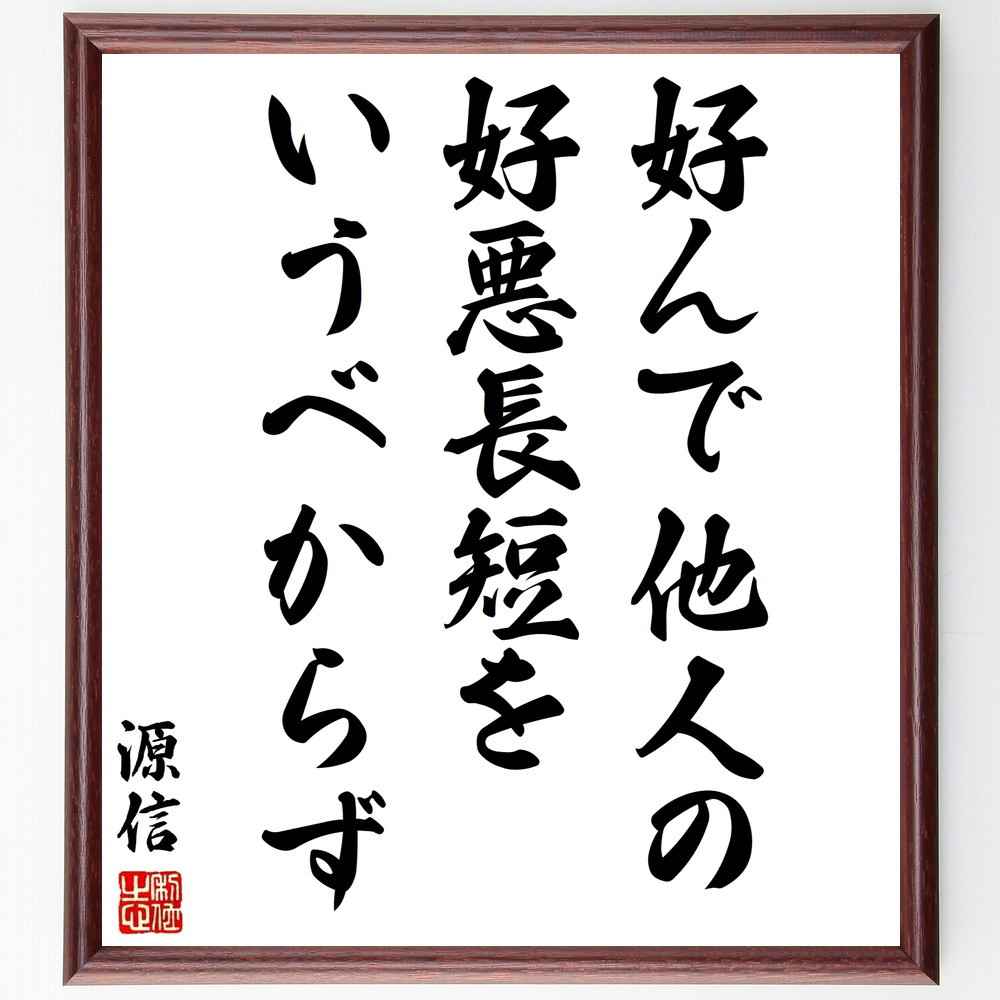 好んで他人の
好悪長短を
いうべからず
源信